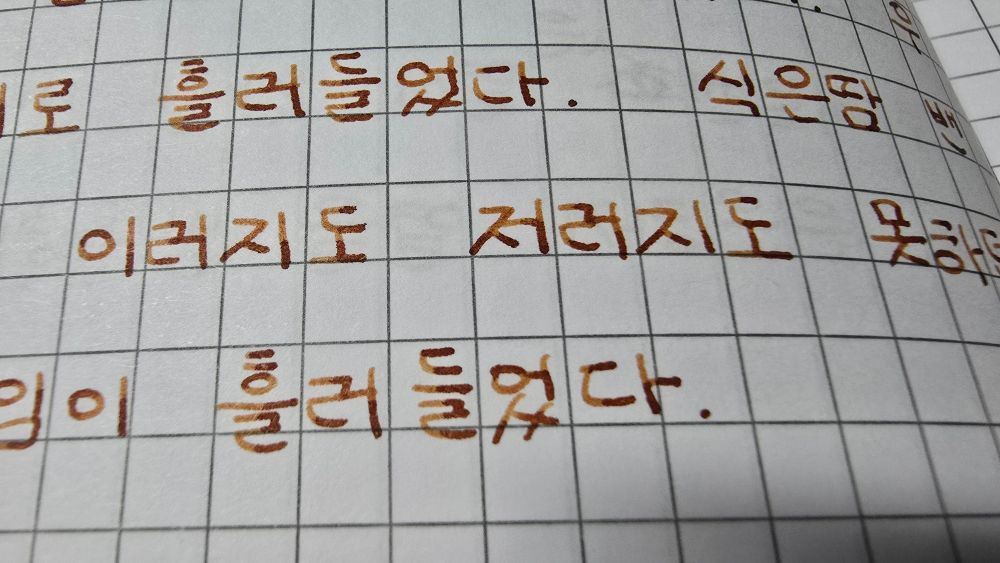 로 흘러들었다. 식은땀
이러지도 저러지도 못하
임이 흘러들었다.